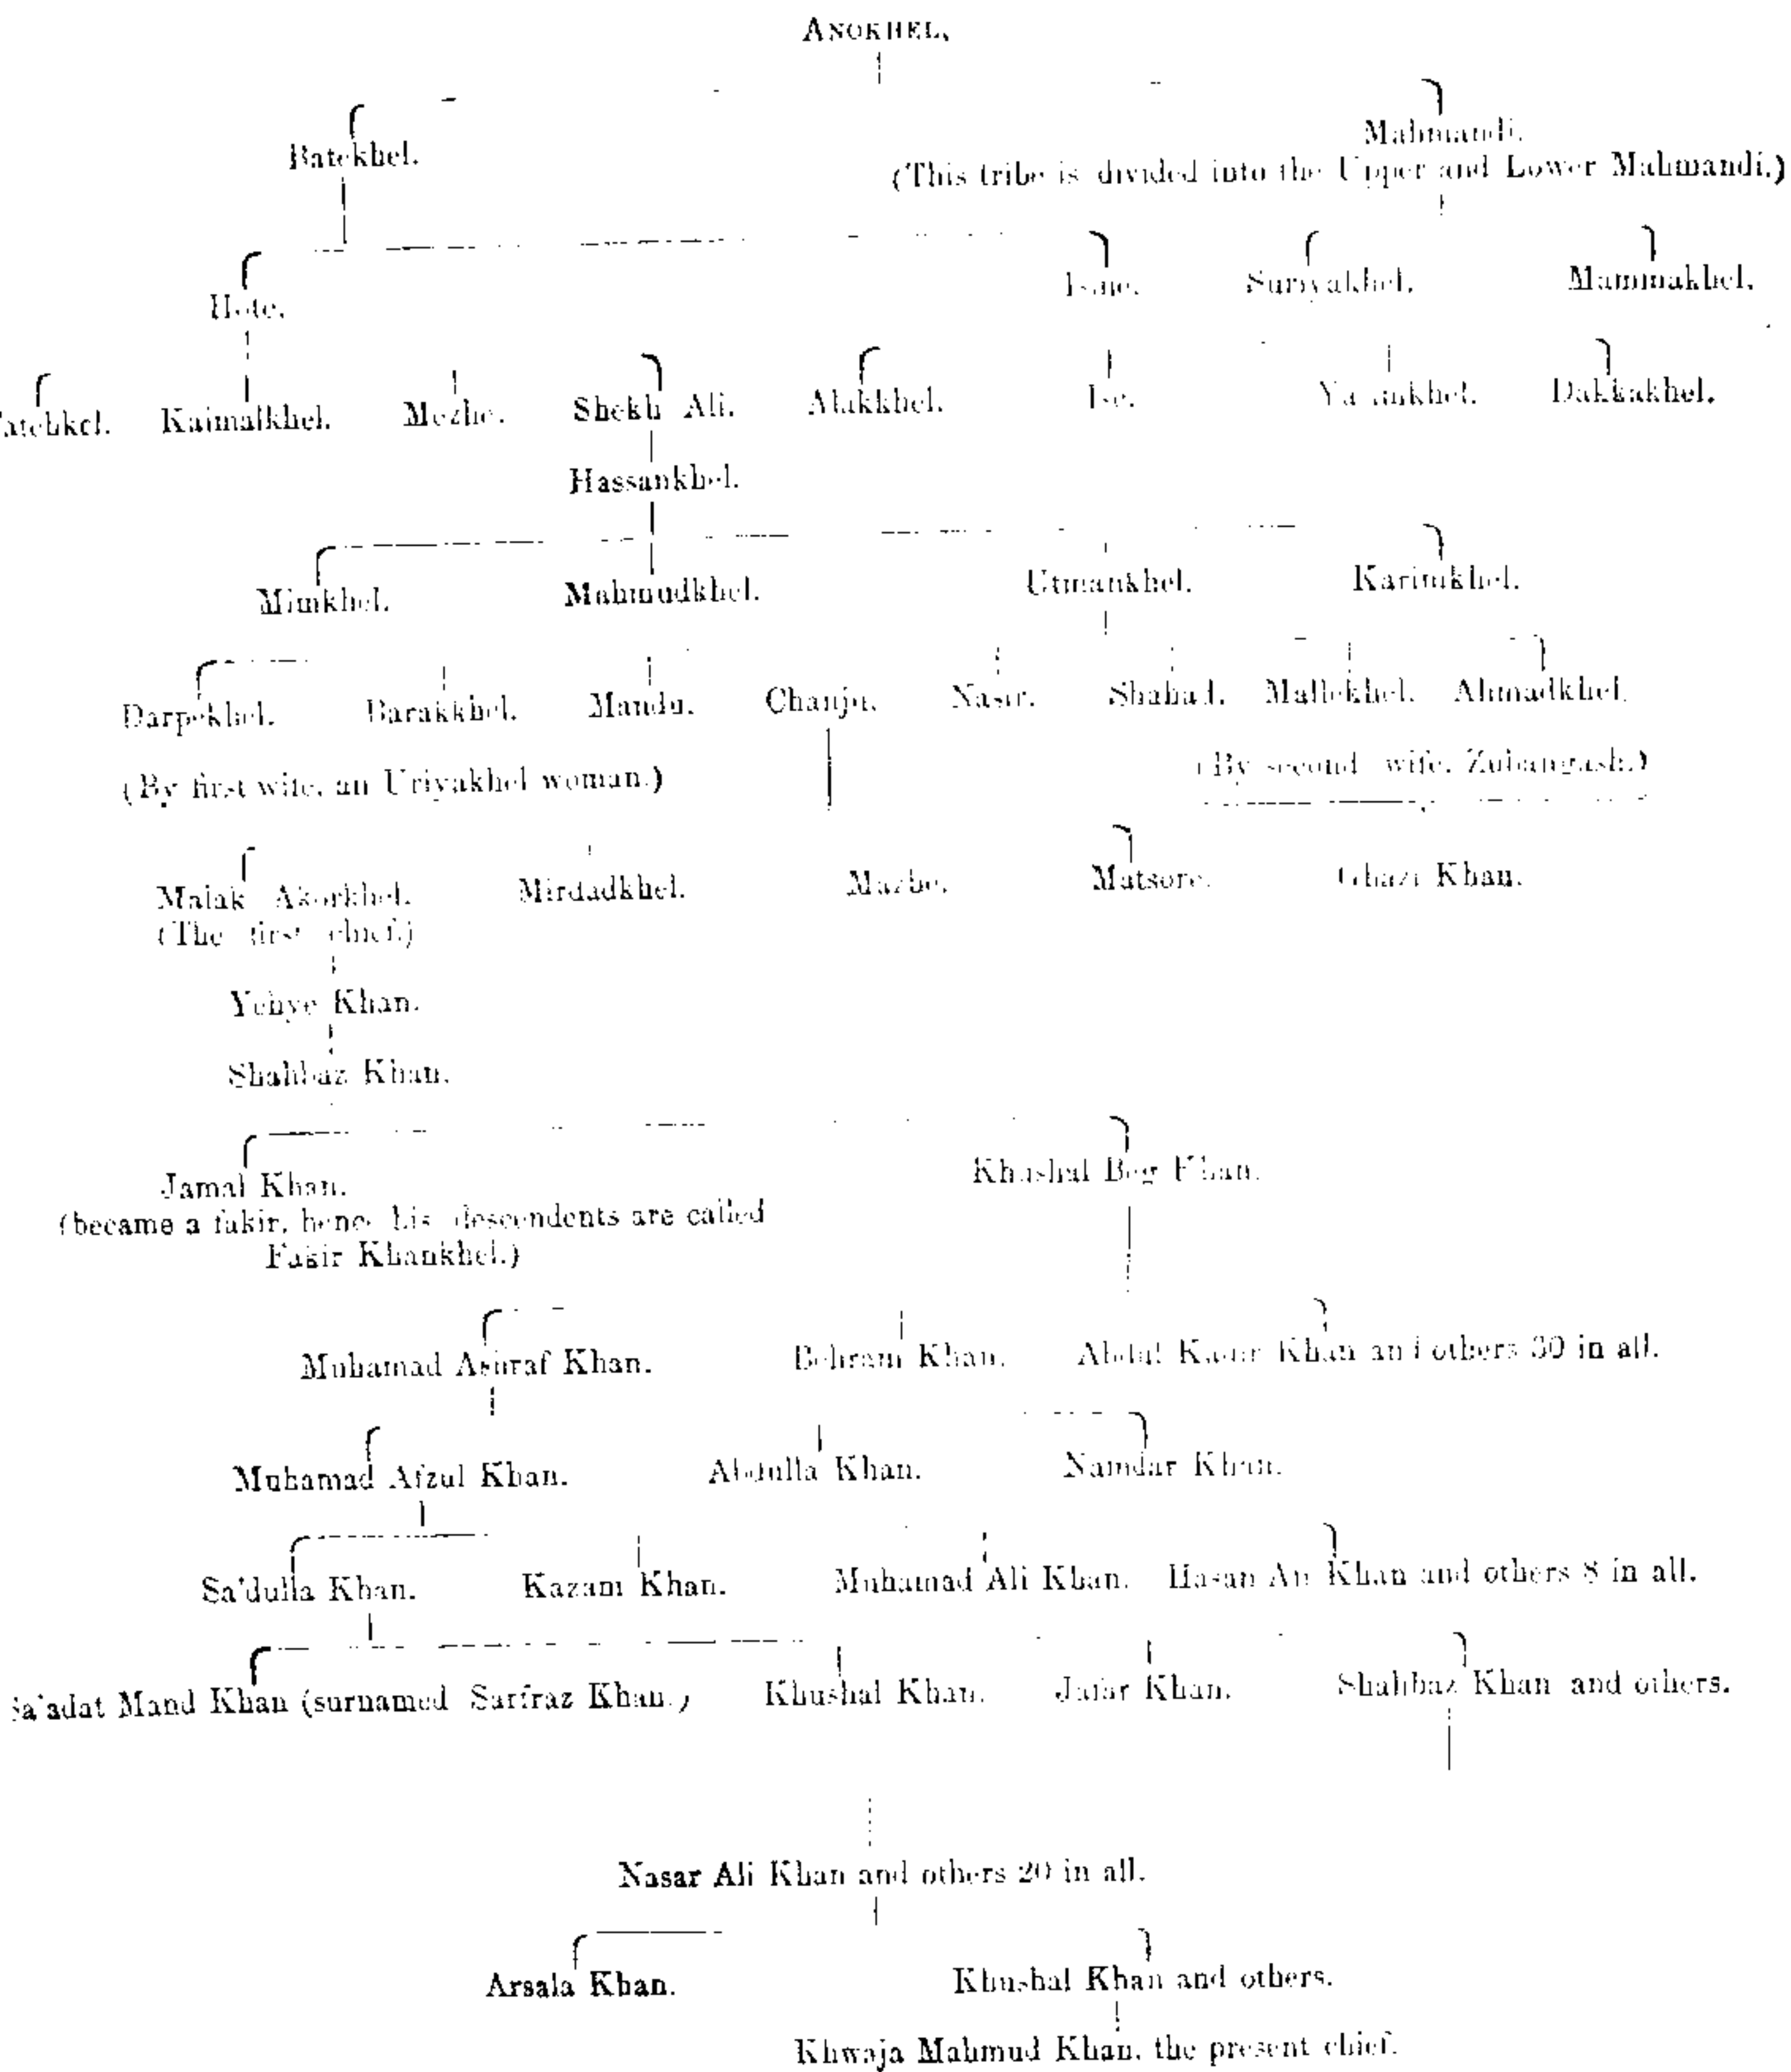 ANOKHEL.
Batekhel.
Mahmandi.
(This tribe is divided into the Upper and Lower Mahmandi.)
Hote. Suriyakhel. Mammakhel.
Kaimalkhel. Mezhe. Shekh Ali. Atakkhel. Ise. Dakkakhel.
Hassankhel.
Mimkhel. Mahmudkhel. Utmankhel. Karimkhel.
Darpekhel. Barakkhel. Mandu. Chanju. Nasir. Shahad. Mallekhel. Ahmadkhel.
(By first wife, an Uriyakhel woman.) (By second wife, Zubangash.)
Malak Akorkhel. Mirdadkhel. Mazhe. Matsore. Ghazi Khan.
(The first chief.)
Yehye Khan.
Shahbaz Khan.
Jamal Khan. Khushal Beg Khan.
(became a fakir, hence his descendents are called
Fakir Khankhel.)
Muhamad Ashraf Khan. Behram Khan. Abdul Kadir Khan and others 30 in all.
Muhamad Afzul Khan. Abdulla Khan. Namdar Khan.
Sa'dulla Khan. Kazam Khan. Muhamad Ali Khan. Hasan Ali Khan and others 8 in all.
Sa'adat Mand Khan (surnamed Sarfraz Khan.) Khushal Khan. Jafar Khan. Shahbaz Khan and others.
Nasar Ali Khan and others 20 in all.
Arsala Khan. Khushal Khan and others.
Khwaja Mahmud Khan, the present chief.